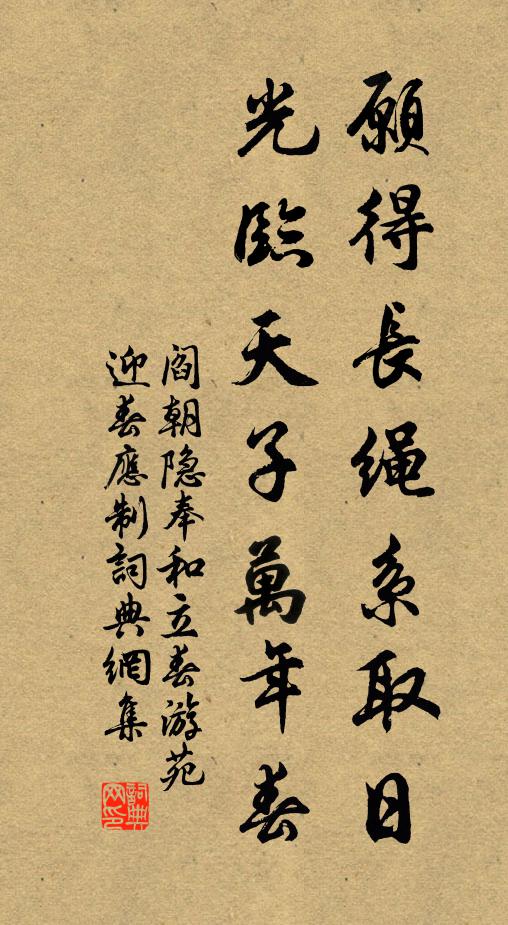 願得長繩系取日
光臨天子萬年春
閻朝隐奉和立春游苑
迎春應制詞典網集
詞典网印